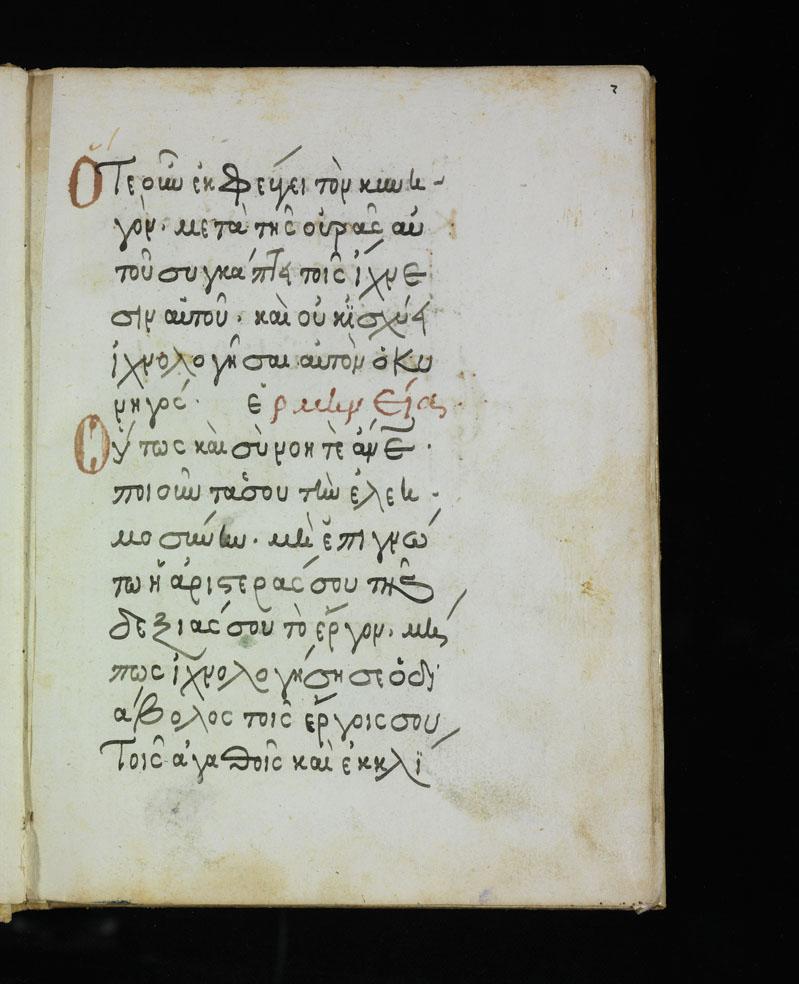 3
Ὅτε οὖν ἐκφεύγει τὸν κυνη-
γὸν. μετὰ τῆς οὐρᾶς αὐ
τοῦ συγκάπτει τοῖς ἴχνε
σιν αὐτοῦ. καὶ οὐκ ἰσχύει
ἰχνολογῆσαι αὐτὸν ὁ κυ
νηγός. ἑρμηνεία.
Οὕτως καὶ σὺ νοητὲ ἄνε.
ποιῶν τα σου τὴν ἐλεη-
μοσύνην. μὴ ἐπιγνώ
τω ἡ ἀριστερά σου τῆς
δεξιάς σου τὸ ἔργον. μή
πως ἰχνολογήση σε ὁ δι
άβολος τοῖς ἔργοις σου
τοῖς ἀγαθοῖς καὶ ἐκκλί